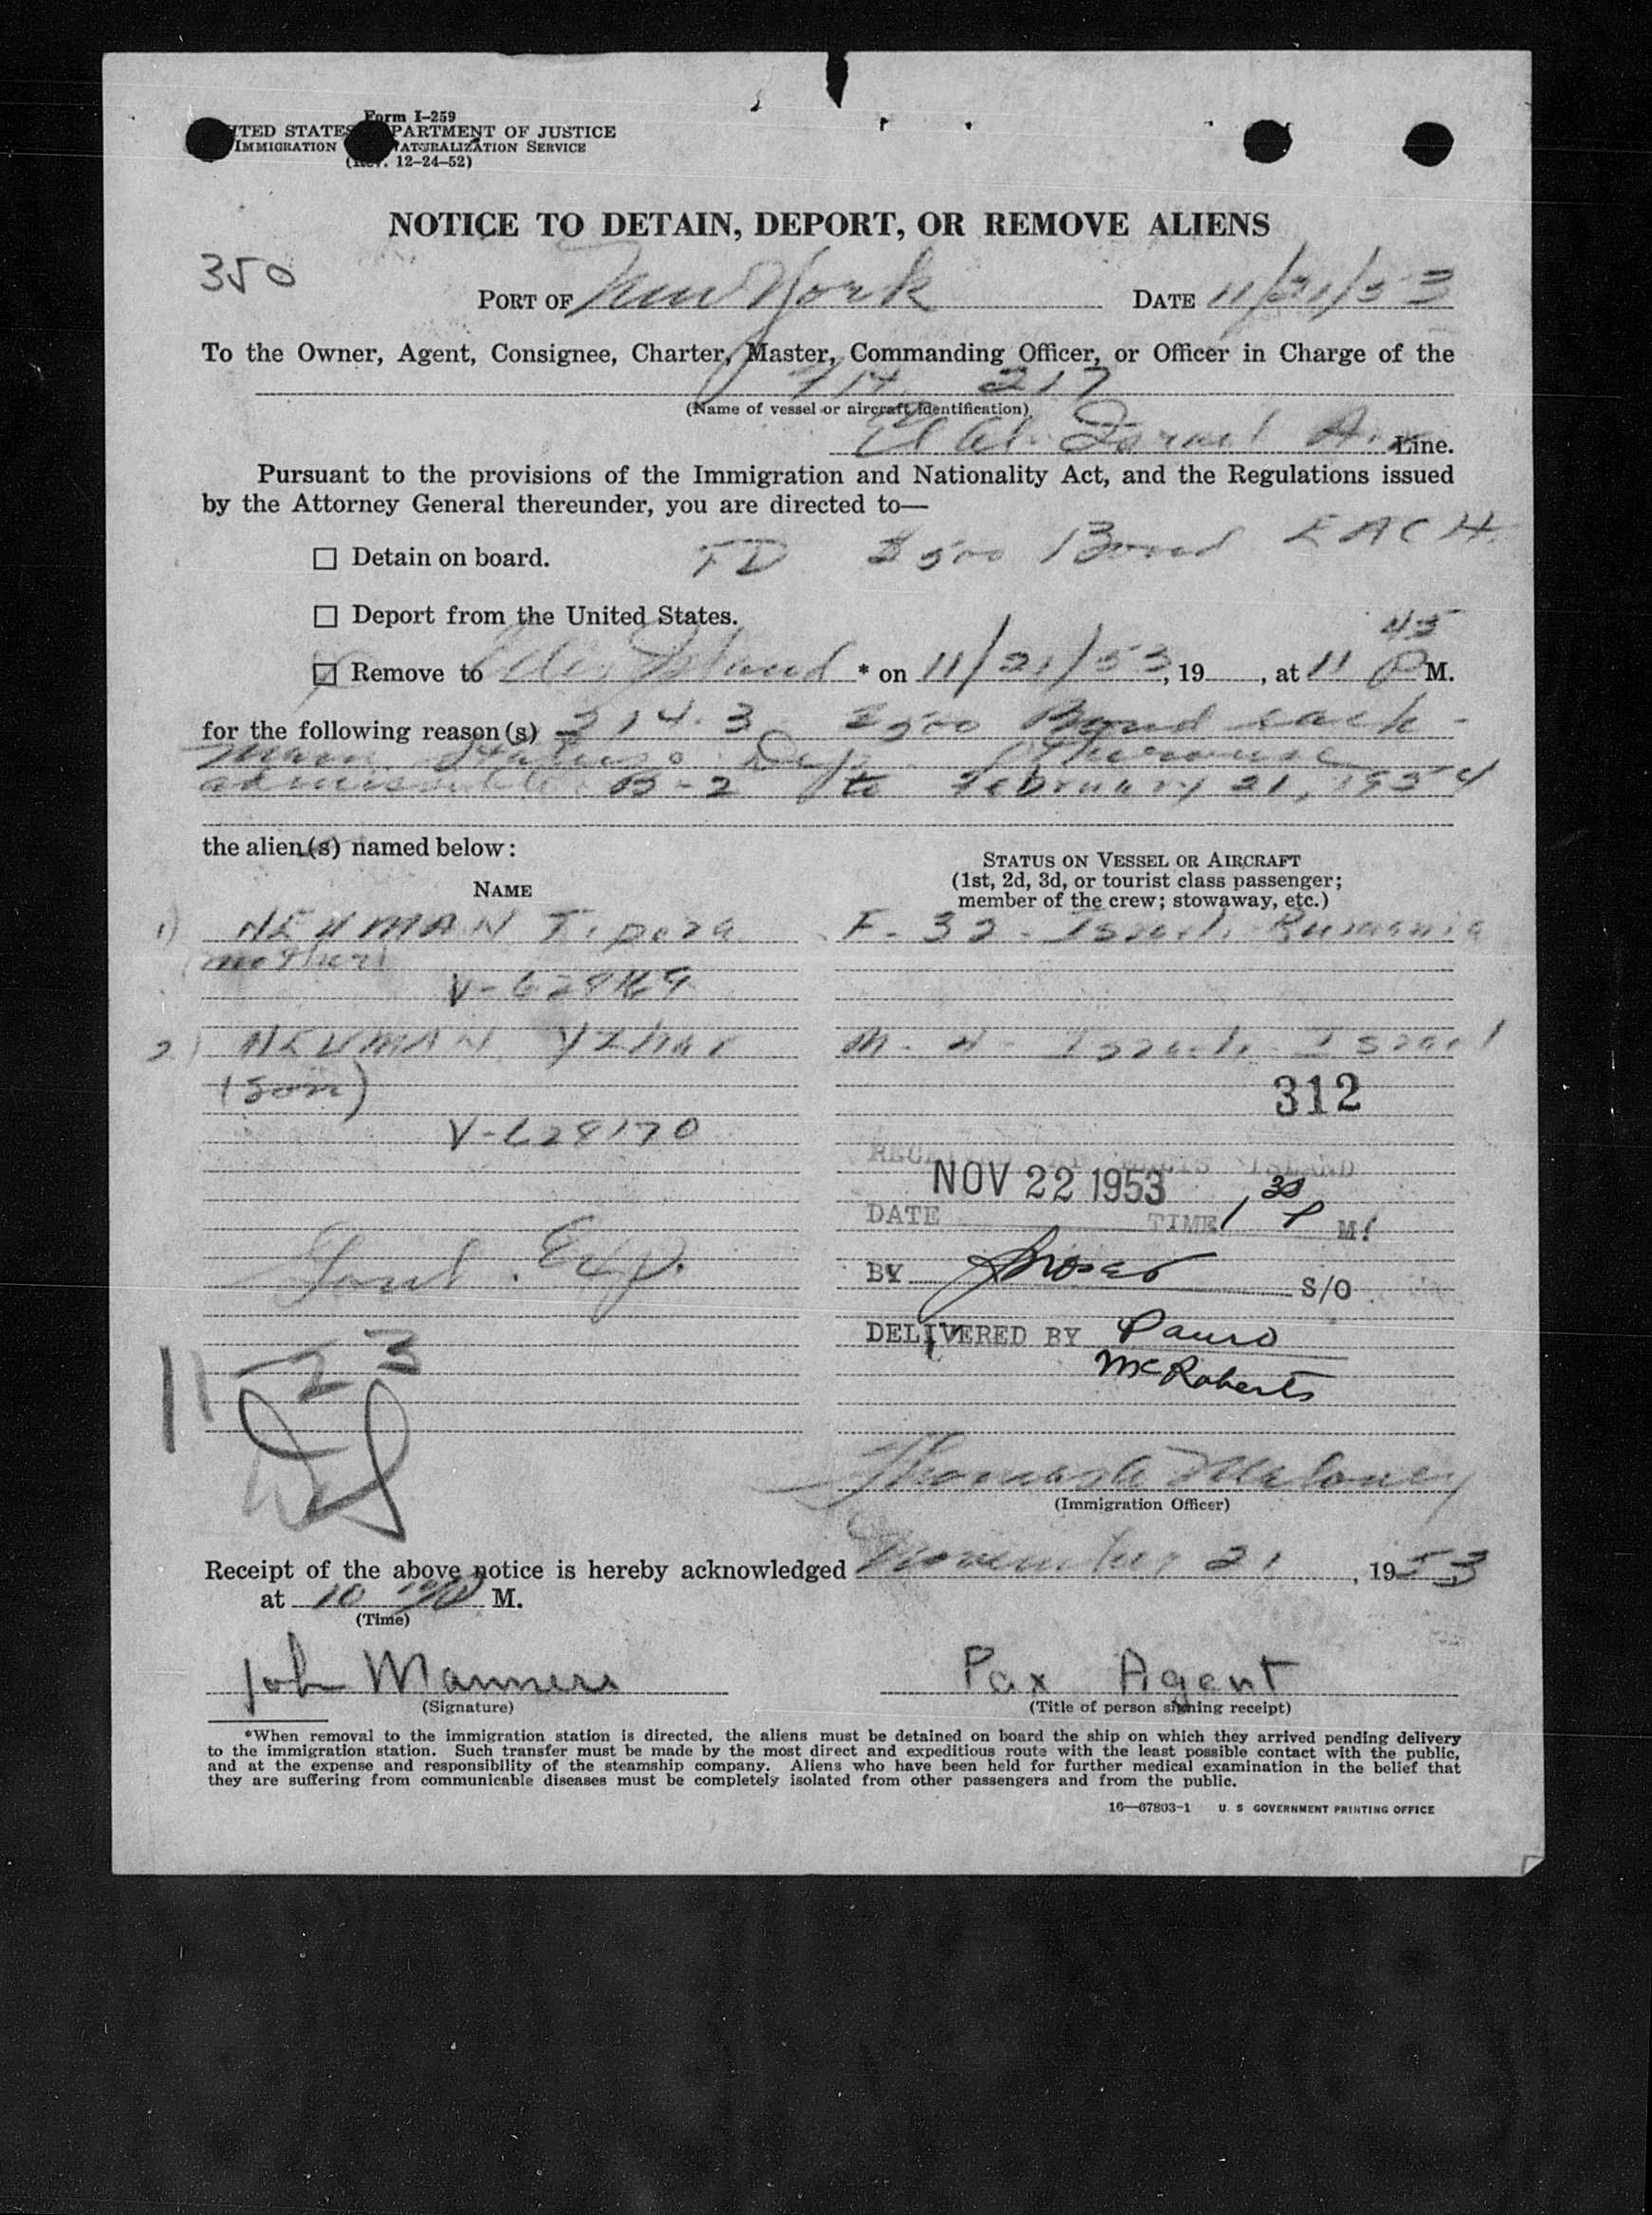 Form I-259
UNITED STATES DEPARTMENT OF JUSTICE
IMMIGRATION NATURALIZATION SERVICE
(Rev. 12-24-52)
NOTICE TO DETAIN, DEPORT, OR REMOVE ALIENS
350
PORT OF New York DATE 11/21/53
To the Owner, Agent, Consignee, Charter, Master, Commanding Officer, or Officer in Charge of the
217
(Name of vessel or aircraft identification)
El Al Israel Air Line.
Pursuant to the provisions of the Immigration and Nationality Act, and the Regulations issued
by the Attorney General thereunder, you are directed to—
☐ Detain on board. TD 2500 Bond EACH
☐ Deport from the United States.
☑ Remove to Ellis Island * on 11/21/53, 19 , at 11 45 P M.
for the following reason(s) 214.3 2500 Bond each -
Main Status & Dep. Otherwise
admissible B-2 to February 21, 1954
the alien(s) named below:
NAME
STATUS ON VESSEL OR AIRCRAFT
(1st, 2d, 3d, or tourist class passenger;
member of the crew; stowaway, etc.)
1) NEUMAN Tipora F- 32 - Israel. Rumania
(mother)
V-629169
2) NEUMAN Yzhar M- Israel. Israel
(son)
312
V-629170
RECEIVED AT ELLIS ISLAND
NOV 22 1953
DATE TIME 1 30 P M.
BY S/O
DELIVERED BY
McRoberts
11-23
Thomas Maloney
(Immigration Officer)
Receipt of the above notice is hereby acknowledged November 21, 1953
at 10 P M.
(Time)
John Manners Pax Agent
(Signature) (Title of person signing receipt)
*When removal to the immigration station is directed, the aliens must be detained on board the ship on which they arrived pending delivery
to the immigration station. Such transfer must be made by the most direct and expeditious route with the least possible contact with the public,
and at the expense and responsibility of the steamship company. Aliens who have been held for further medical examination in the belief that
they are suffering from communicable diseases must be completely isolated from other passengers and from the public.
16—67803-1 U. S GOVERNMENT PRINTING OFFICE